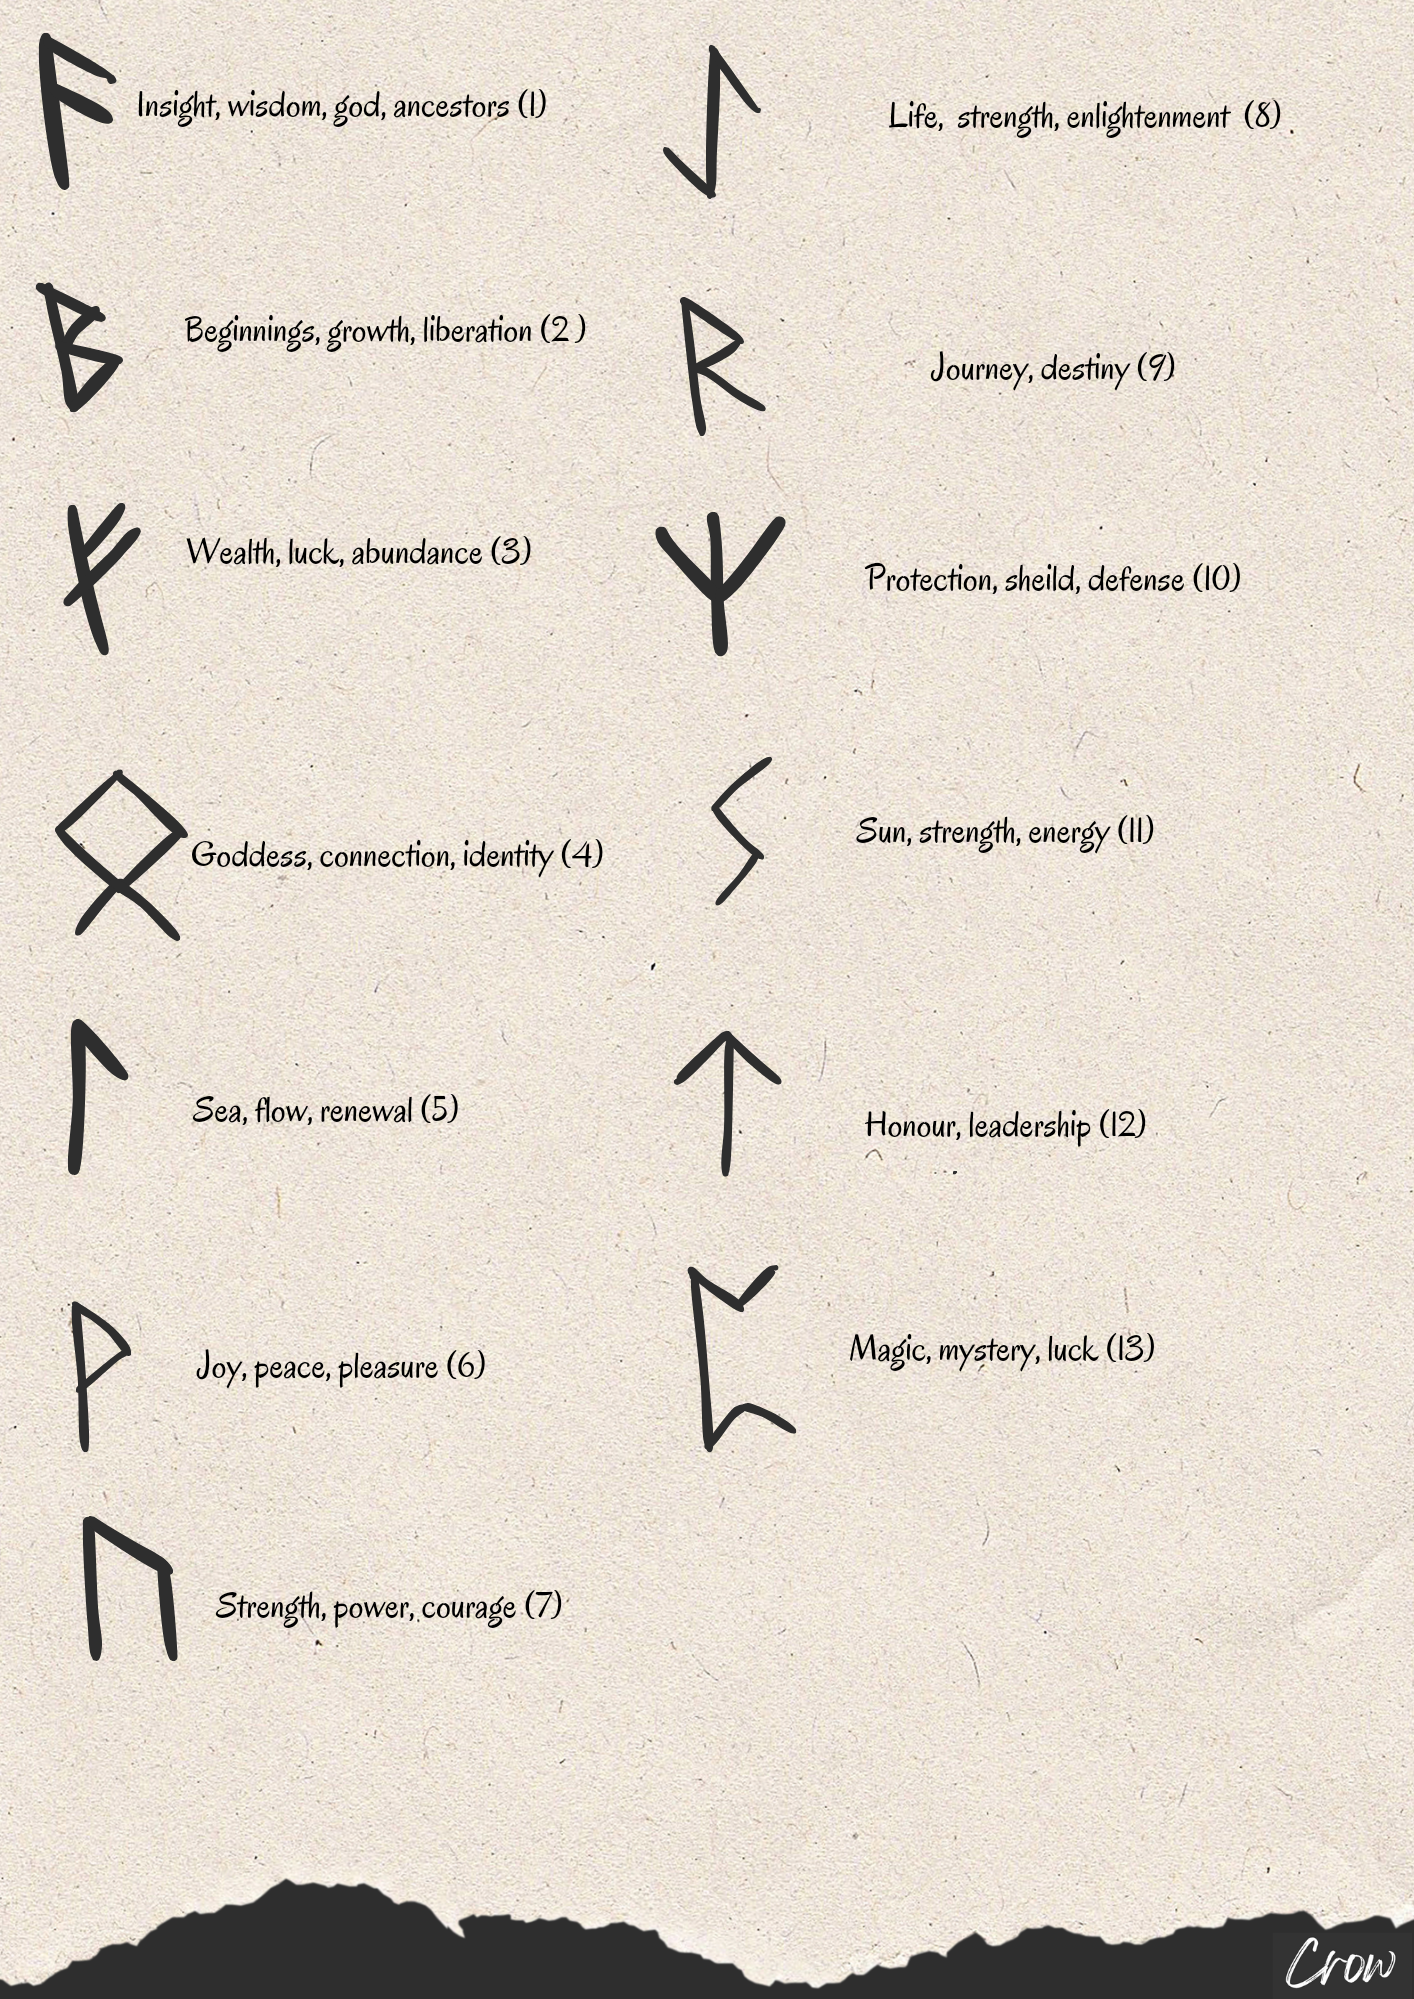 ᚨ Insight, wisdom, god, ancestors (1)
ᛒ Beginnings, growth, liberation (2 )
ᚠ Wealth, luck, abundance (3)
ᛟ Goddess, connection, identity (4)
ᛚ Sea, flow, renewal (5)
ᚹ Joy, peace, pleasure (6)
ᚢ Strength, power, courage (7)
ᛇ Life, strength, enlightenment (8)
ᚱ Journey, destiny (9)
ᛉ Protection, sheild, defense (10)
ᛊ Sun, strength, energy (11)
ᛏ Honour, leadership (12)
ᛈ Magic, mystery, luck (13)
Crow